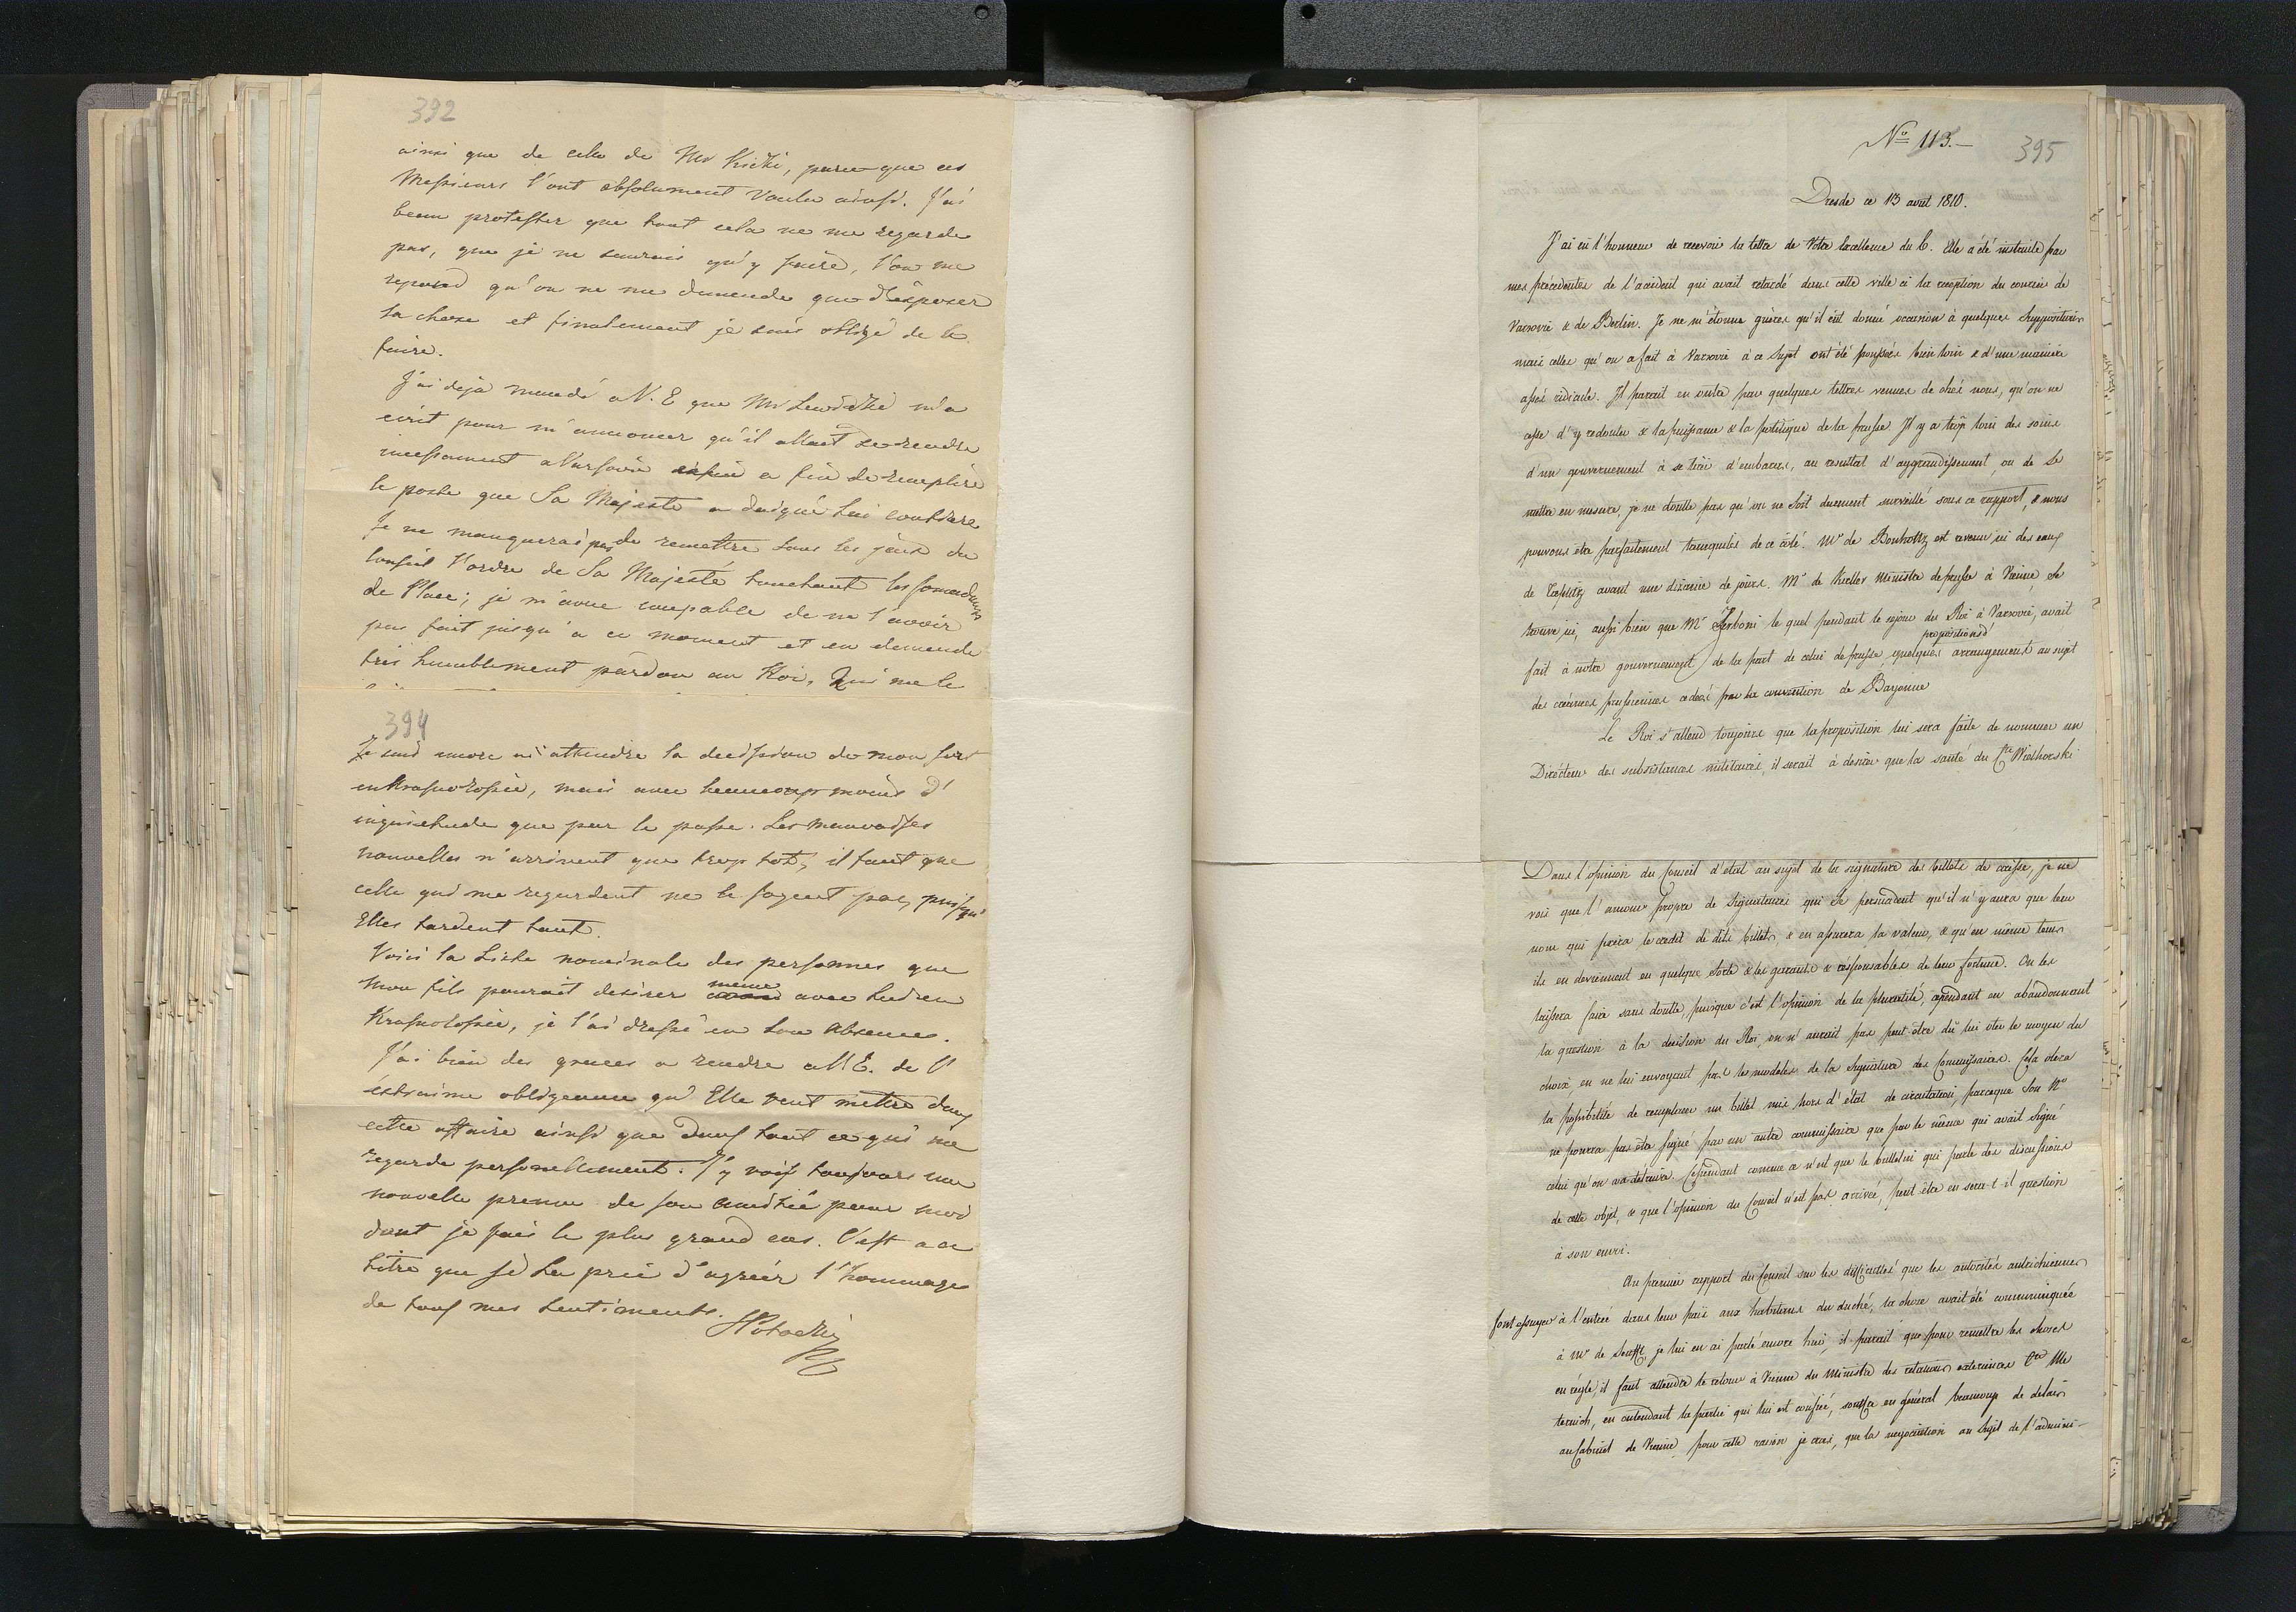 392
ainsi que de celle de Mr Kicki, parce que ces
Messieurs l'ont absolument voulu ainsi. J'ai
beau protester que tout cela ne me regarde
pas, que je ne saurais qu'y faire, l'on me
repond qu'on ne me demande que d'exposer
la chose et finalement je suis obligé de le
faire.
J'ai deja mandé a V. E que Mr Lewicki m'a
ecrit pour m'annoncer qu'il allait se rendre
incessament a Varsovie a fin de remplire
le poste que Sa Majesté a daigné lui confier
Je ne manquerai pas de remettre sous les yeux du
Conseil l'ordre de Sa Majesté touchant les Comendants
de Place; je m'avoue coupable de ne l'avoir
pas fait jusqu'a ce moment et en demande
très humblement pardon au Roi, Qui me le
394
Je suis encore a attendre la decission de mon sort
en Krasnolossie, mais avec beaucoup moins d'
inquietude que par le passe. Les mauvaises
nouvelles n'arrivent que trop tot, il faut que
celle qui me regardent ne le soyent pas, puisqu'
Elles tardent tant.
Voici la Liste nominale des personnes que
mon fils pourait desirer meme avec lui en
Krasnolossie, je l'ai dressé en son absence.
J'ai bien des graces a rendre a V.E. de l'
extraime obligeance qu'Elle veut mettre dans
cette affaire ainsi que dans tout ce qui me
regarde personellement. J'y vois toujours une
nouvelle preuve de son amitié pour moi
dont je fais le plus grand cas. C'est a ce
titre que je La prie d'agréer l'hommage
de tous mes sentiments.
SPotocki
No 113.-
395
Dresde ce 13 avril 1810.
J'ai eû l'honneur de recevoir la lettre de Votre Excellence du 6. Elle a été instruite par
mes précedentes de l'accident qui avait retardé dans cette ville ci la reception du courier de
Varsovie & de Berlin. Je ne m'étonne guères qu'il eût donné occasion à quelques suppositions
mais celles qu'on a fait à Varsovie à ce sujet ont été poussées bien loin & d'une manière
assés ridicule. Il parait en outre par quelques lettres venues de chés nous, qu'on ne
cesse d'y redouter & la puissance & la politique de la prusse Il y a trop loin des soins
d'un gouvernement à se tirer d'embaras, au resultat d'aggrandissement, ou de se
mettre en mesure, je ne doute pas qu'on ne soit duement surveillé sous ce rapport, & nous
pouvons être parfaitement tranquiles de ce côté. Mr de Bouholtz est revenu ici des eaux
de Toeplitz avant une dizaine de jours. Mr de Kuller Ministre de prusse à Vienne, se
trouve ici, aussi bien que Mr Zerboni le quel pendant le sejour du Roi à Varsovie, avait
propositions d'
fait à notre gouvernement de la part de celui de prusse, quelques arrangement au sujet
des créances prussiennes cedées par la convention de Bayonne
Le Roi s'attend toujours que la proposition lui sera faite de nommer un
Directeur des subsistances militaires, il serait à desirer que la santé du Cte Wielhorski
Dans l'opinion du Conseil d'état au sujet de la signature des billets de caisse, je ne
vois que l'amour propre de signataires qui se persuadent qu'il n'y aura que leur
nom qui fera le credit de dits billets & en assurera la valeur, & qu'en même tems
ils en deviennent en quelque sorte & les garants & responsables de leur fortune. On les
laissera faire sans doute, puisque c'est l'opinion de la pluralité, cependant en abandonnant
la question à la decision du Roi, on n'aurait pas peut être dû lui oter le moyen du
choix en ne lui envoyant pas le modèle de la signature des Commissaires. Cela otera
la possibilité de remplacer un billet mis hors d'état de circulation, parceque son No
ne pourra pas être signé par un autre commissaire que par le même qui avait signé
celui qu'on va détruire. Cependant comme ce n'est que le bulletin qui parle des discussions
de cette objet, & que l'opinion du Conseil n'est pas arrivée, peut être en sera-t-il question
à son envoi.
Au premier rapport du Conseil sur les difficultés que les autorités autrichiennes
font essuyer à l'entrée dans leur païs aux habitans du duché, la chose avait été communiquée
à Mr de Senfft, je lui en ai parlé encore hier, il parait que pour remettre les choses
en règle, il faut attendre le retour à Vienne du Ministre des relations exterieures Cte Me
ternich, en attendant la partie qui lui est confiée, souffre en général beaucoup de delais
au Cabinet de Vienne, pour cette raison je crois, que la negociation au sujet de l'admini-